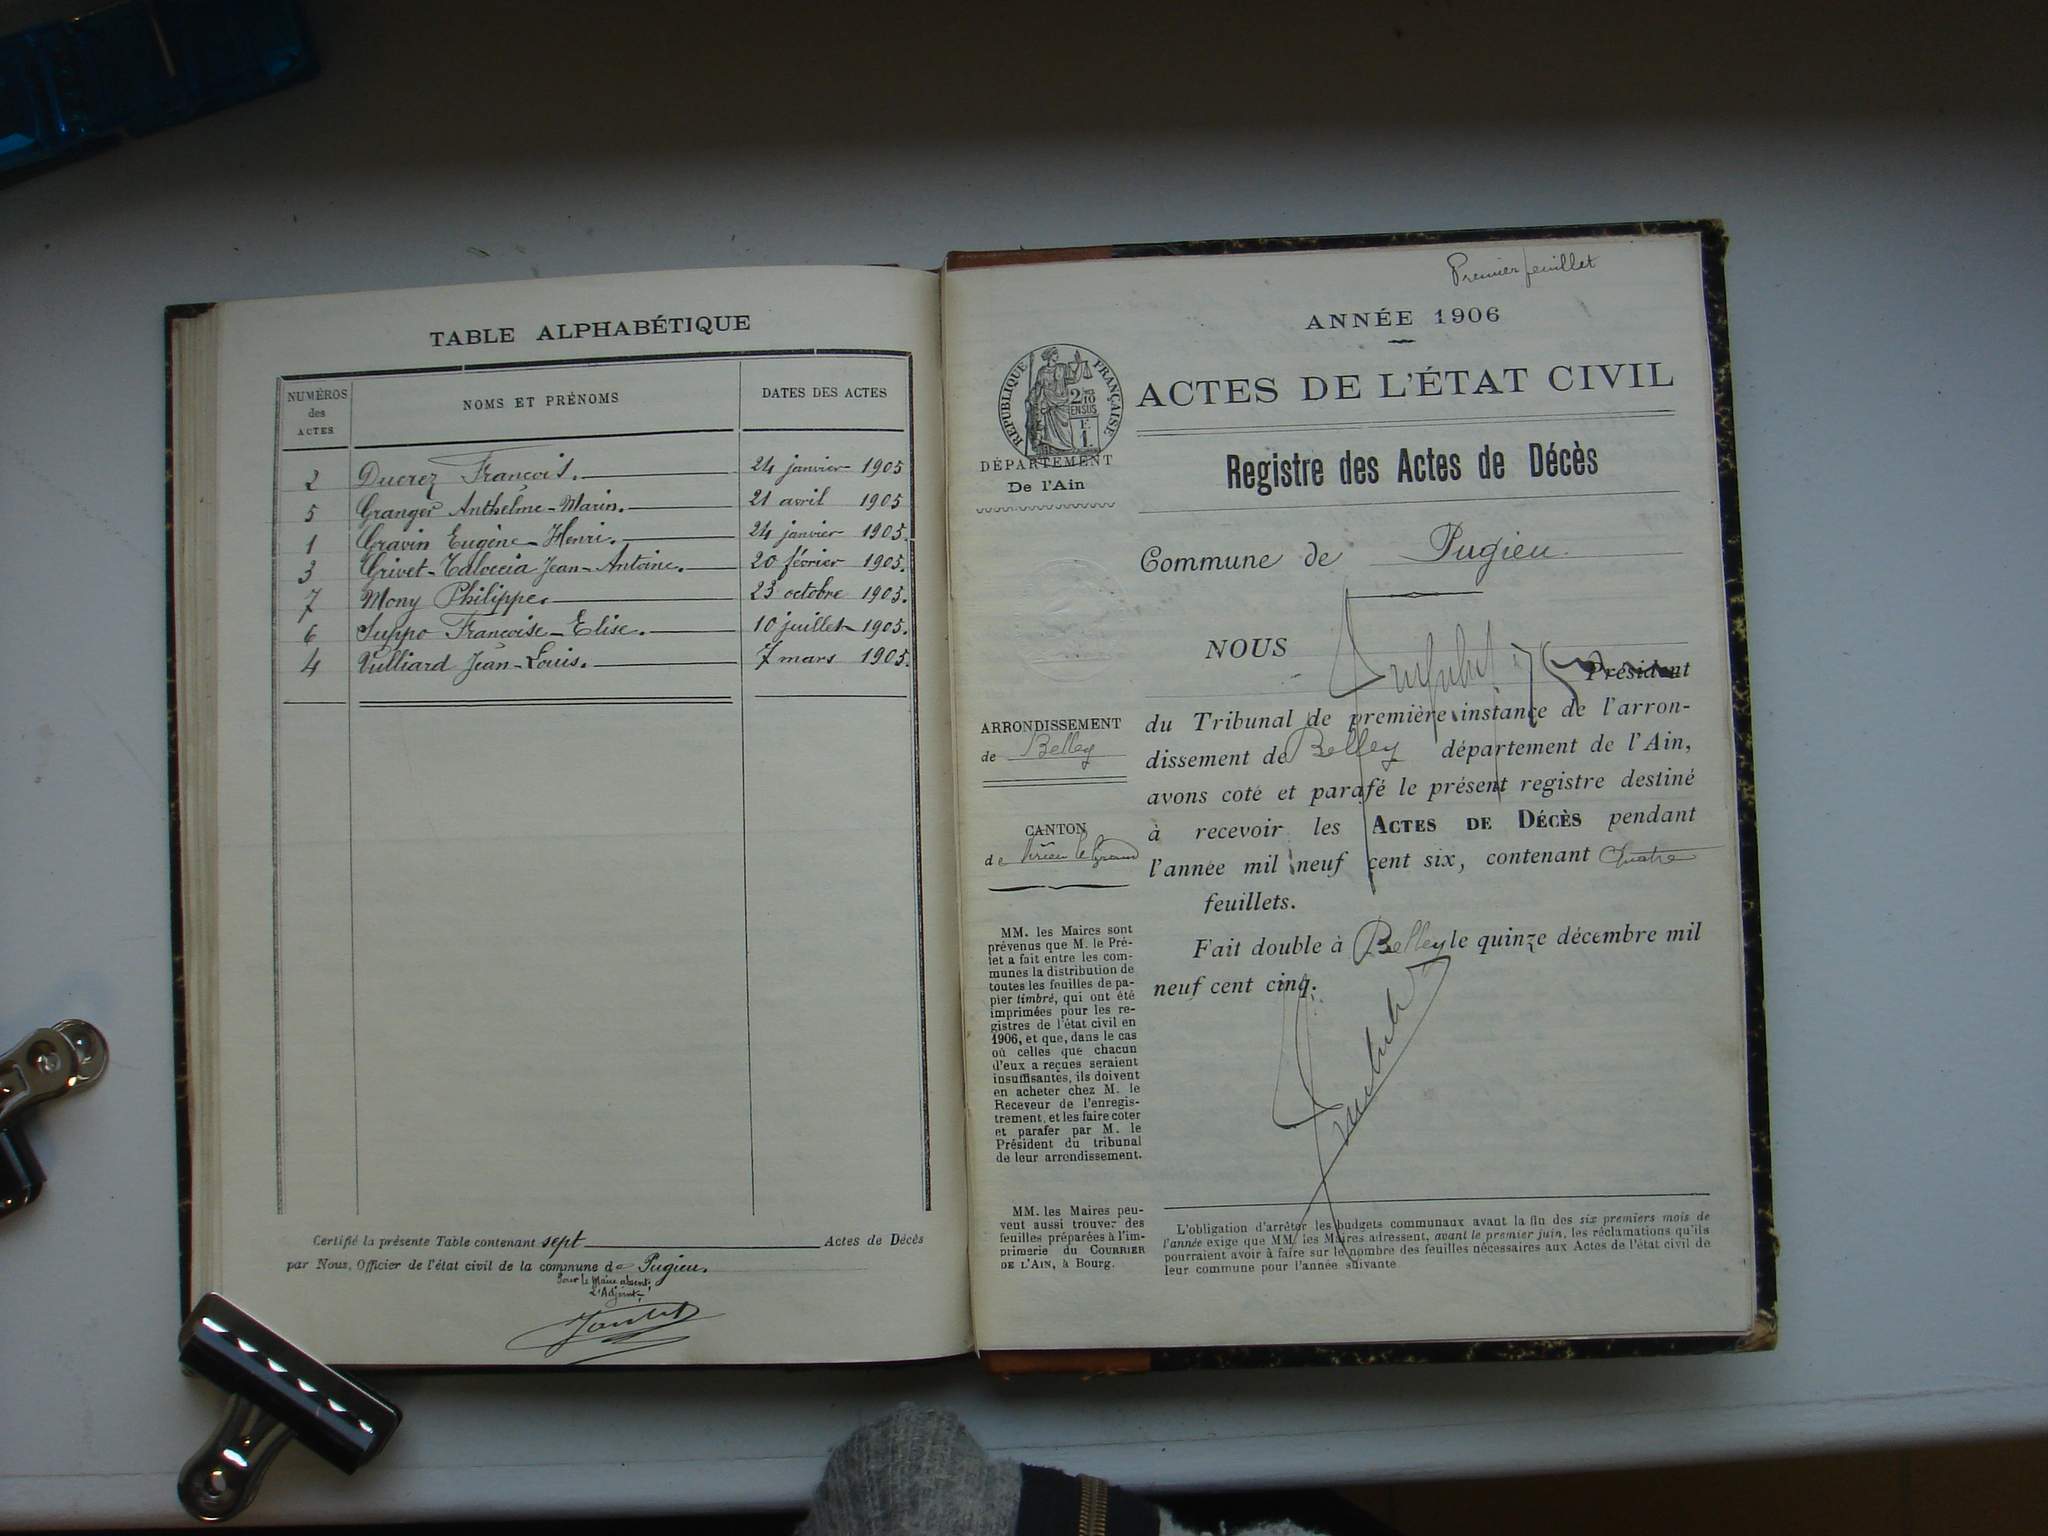 TABLE ALPHABÉTIQUE
NUMÉROS des ACTES
NOMS ET PRÉNOMS
DATES DES ACTES
2 Ducrez François. 24 janvier 1905
5 Granger Anthelme-Marin. 21 avril 1905
1 Gravin Eugène-Henri. 24 janvier 1905.
3 Grivet-Taloccia Jean-Antoine. 20 février 1905.
7 Mony Philippe. 23 octobre 1905.
6 Suppo Françoise-Elise. 10 juillet 1905.
4 Vulliard Jean-Louis. 7 mars 1905.
Certifié la présente Table contenant sept Actes de Décès
par Nous, Officier de l'état civil de la commune de Pugieu.
Pour le Maire absent,
L'Adjoint,
Premier feuillet
ANNÉE 1906
RÉPUBLIQUE FRANÇAISE
2/10 EN SUS
F. 1.
ACTES DE L'ÉTAT CIVIL
DÉPARTEMENT
De l'Ain
Registre des Actes de Décès
Commune de Pugieu
NOUS Président
du Tribunal de première instance de l'arron-
dissement de Belley département de l'Ain,
avons coté et parafé le présent registre destiné
à recevoir les ACTES DE DÉCÈS pendant
l'année mil neuf cent six, contenant Quatre
feuillets.
Fait double à Belley le quinze décembre mil
neuf cent cinq.
ARRONDISSEMENT
de Belley
CANTON
de Virieu le Grand
MM. les Maires sont
prévenus que M. le Pré-
fet a fait entre les com-
munes la distribution de
toutes les feuilles de pa-
pier timbré, qui ont été
imprimées pour les re-
gistres de l'état civil en
1906, et que, dans le cas
où celles que chacun
d'eux a reçues seraient
insuffisantes, ils doivent
en acheter chez M. le
Receveur de l'enregis-
trement, et les faire coter
et parafer par M. le
Président du tribunal
de leur arrondissement.
MM. les Maires peu-
vent aussi trouver des
feuilles préparées à l'im-
primerie du COURRIER
DE L'AIN, à Bourg.
L'obligation d'arrêter les budgets communaux avant la fin des six premiers mois de
l'année exige que MM. les Maires adressent, avant le premier juin, les réclamations qu'ils
pourraient avoir à faire sur le nombre des feuilles nécessaires aux Actes de l'état civil de
leur commune pour l'année suivante